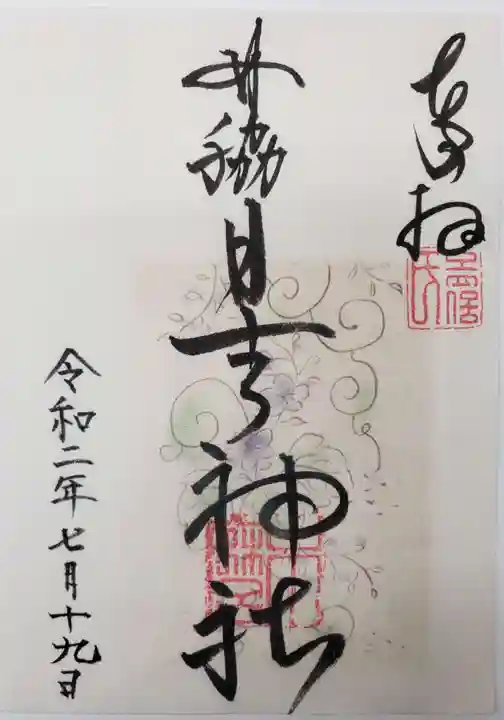 奉拝
井脇日吉神社
令和二年七月十九日